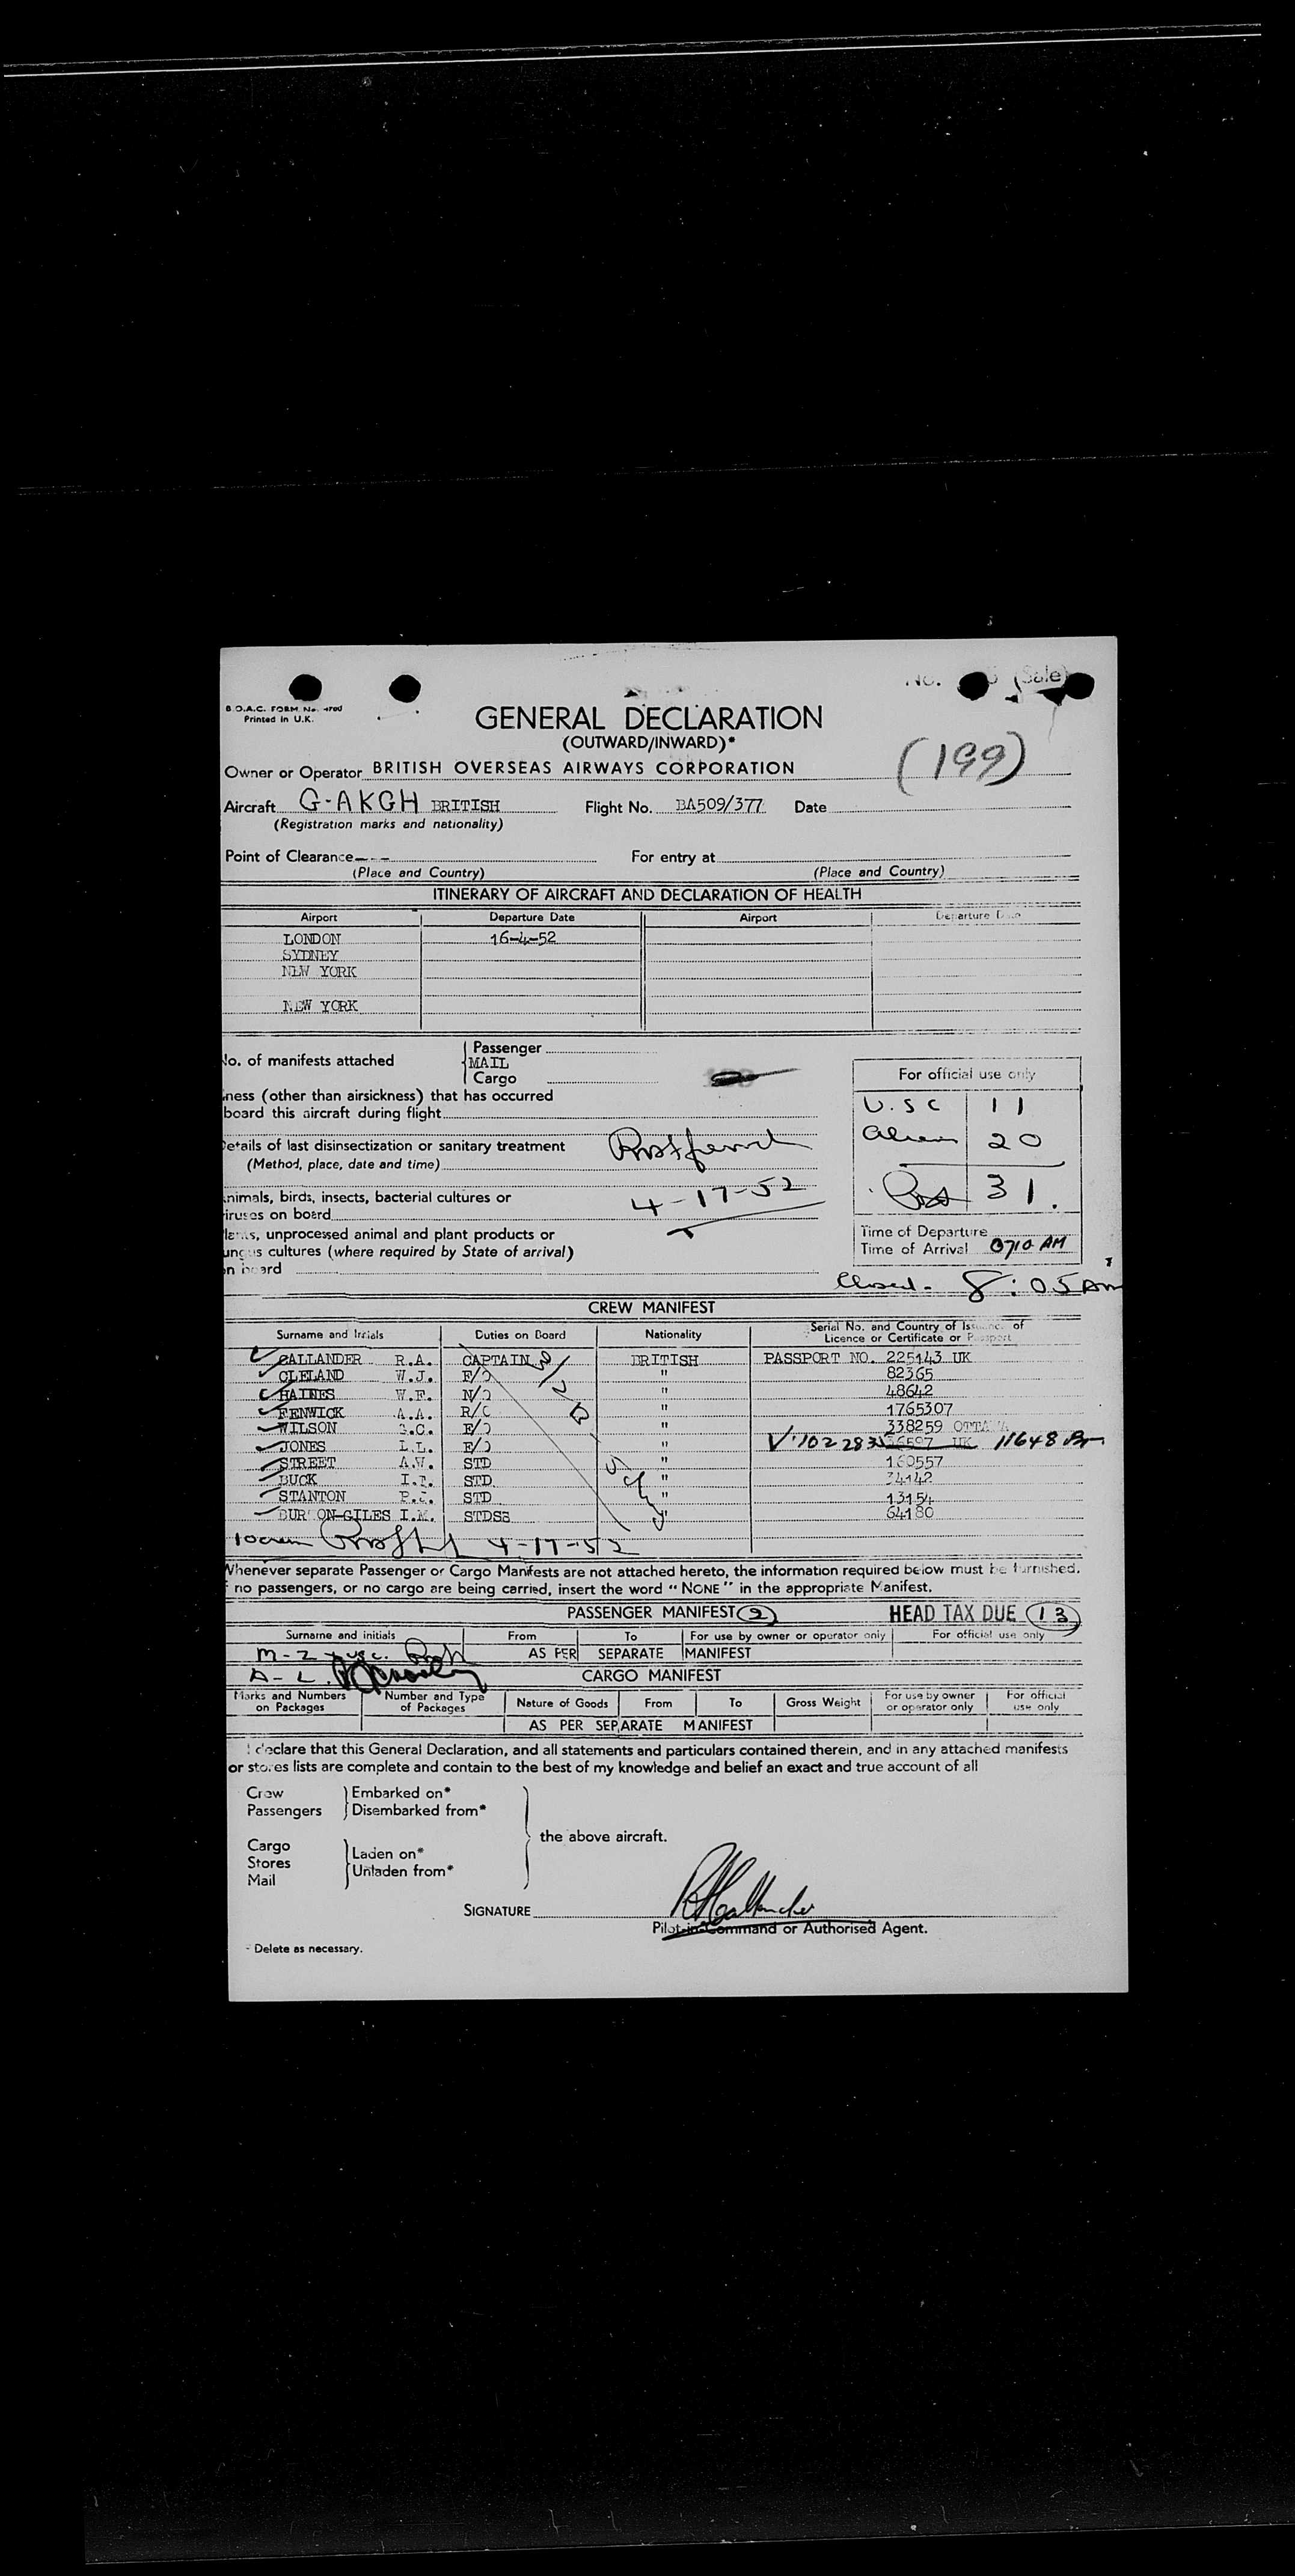 No. (Sale)
B.O.A.C. FORM No. 4700
Printed in U.K.
GENERAL DECLARATION
(OUTWARD/INWARD)*
(199)
Owner or Operator BRITISH OVERSEAS AIRWAYS CORPORATION
Aircraft G-AKGH BRITISH Flight No. BA509/377 Date
(Registration marks and nationality)
Point of Clearance For entry at
(Place and Country) (Place and Country)
ITINERARY OF AIRCRAFT AND DECLARATION OF HEALTH
Airport Departure Date Airport Departure
LONDON 16-4-52
SYDNEY
NEW YORK
NEW YORK
No. of manifests attached Passenger
MAIL
Cargo
For official use only
ness (other than airsickness) that has occurred
board this aircraft during flight
U.S C 11
etails of last disinsectization or sanitary treatment
(Method, place, date and time)
alien 20
nimals, birds, insects, bacterial cultures or
iruses on board
4-17-52
31.
lants, unprocessed animal and plant products or
ungus cultures (where required by State of arrival)
on board
Time of Departure
Time of Arrival 0710 AM
Closed - 8:05 AM
CREW MANIFEST
Surname and Initials Duties on Board Nationality Serial No. and Country of Issuance of Licence or Certificate or Passport
CALLANDER R.A. CAPTAIN BRITISH PASSPORT NO. 225143 UK
CLELAND W.J. F/O " 82365
HAINES W.F. N/O " 48642
FENWICK A.A. R/O " 1765307
WILSON C. E/O " 338259 OTTAWA
JONES L.L. E/O " V.102283 UK 11648
STREET A.W. STD " 160557
BUCK STD " 34142
STANTON STD " 13154
BURTON-GILES I.M. STDSS " 64180
10 crew 4-17-52
Whenever separate Passenger or Cargo Manifests are not attached hereto, the information required below must be furnished.
f no passengers, or no cargo are being carried, insert the word "NONE" in the appropriate Manifest.
PASSENGER MANIFEST 2 HEAD TAX DUE 13
Surname and initials From To For use by owner or operator only For official use only
M-Z usc. AS PER SEPARATE MANIFEST
A-L
CARGO MANIFEST
Marks and Numbers on Packages Number and Type of Packages Nature of Goods From To Gross Weight For use by owner or operator only For official use only
AS PER SEPARATE MANIFEST
I declare that this General Declaration, and all statements and particulars contained therein, and in any attached manifests
or stores lists are complete and contain to the best of my knowledge and belief an exact and true account of all
Crew Embarked on*
Passengers Disembarked from*
the above aircraft.
Cargo
Stores Laden on*
Mail Unladen from*
SIGNATURE RACallander
Pilot-in-Command or Authorised Agent.
* Delete as necessary.